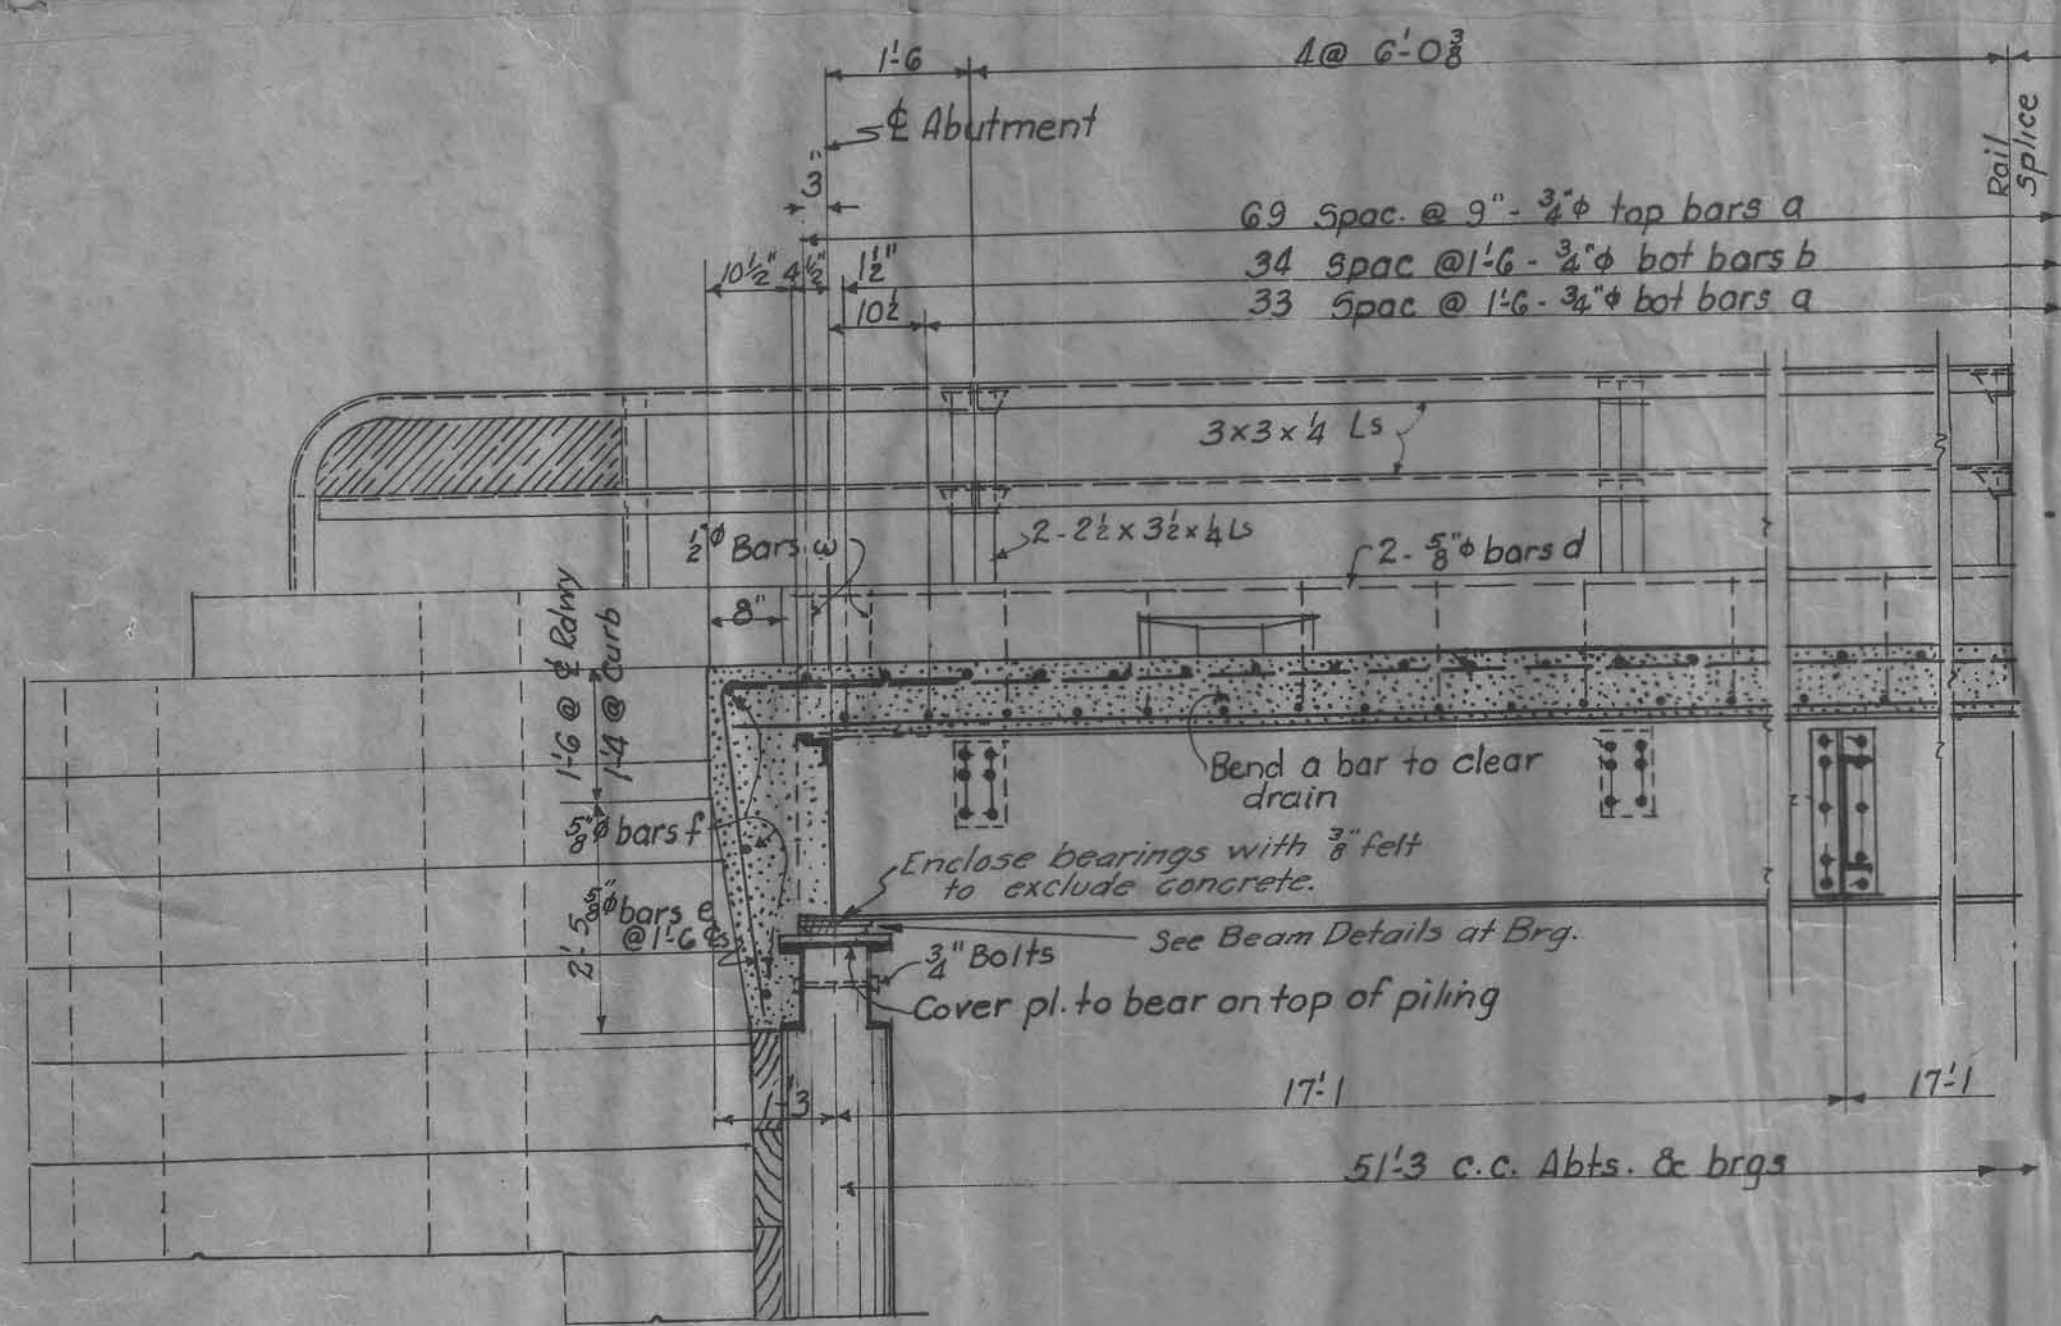 1'-6
4@ 6'-0 3/8
℄ Abutment
3"
Rail
Splice
69 Spac. @ 9" - 3/4"ϕ top bars a
10 1/2"
4 1/2"
1 1/2"
34 spac @1'-6 - 3/4"ϕ bot bars b
10 1/2
33 Spac @ 1'-6 - 3/4"ϕ bot bars a
3×3×1/4 Ls
1/2"ϕ Bars ω
2-2 1/2 × 3 1/2 × 1/4 Ls
2- 5/8"ϕ bars d
8"
1'-6 @ ℄ Rdwy
1'-4 @ Curb
Bend a bar to clear
drain
5/8"ϕ bars f
Enclose bearings with 3/8" felt
to exclude concrete.
5/8"ϕ bars e
@1'-6 ¢s
2'-5
See Beam Details at Brg.
3/4" Bolts
Cover pl. to bear on top of piling
1'-3
17'-1
17'-1
51'-3 c.c. Abts. & brgs